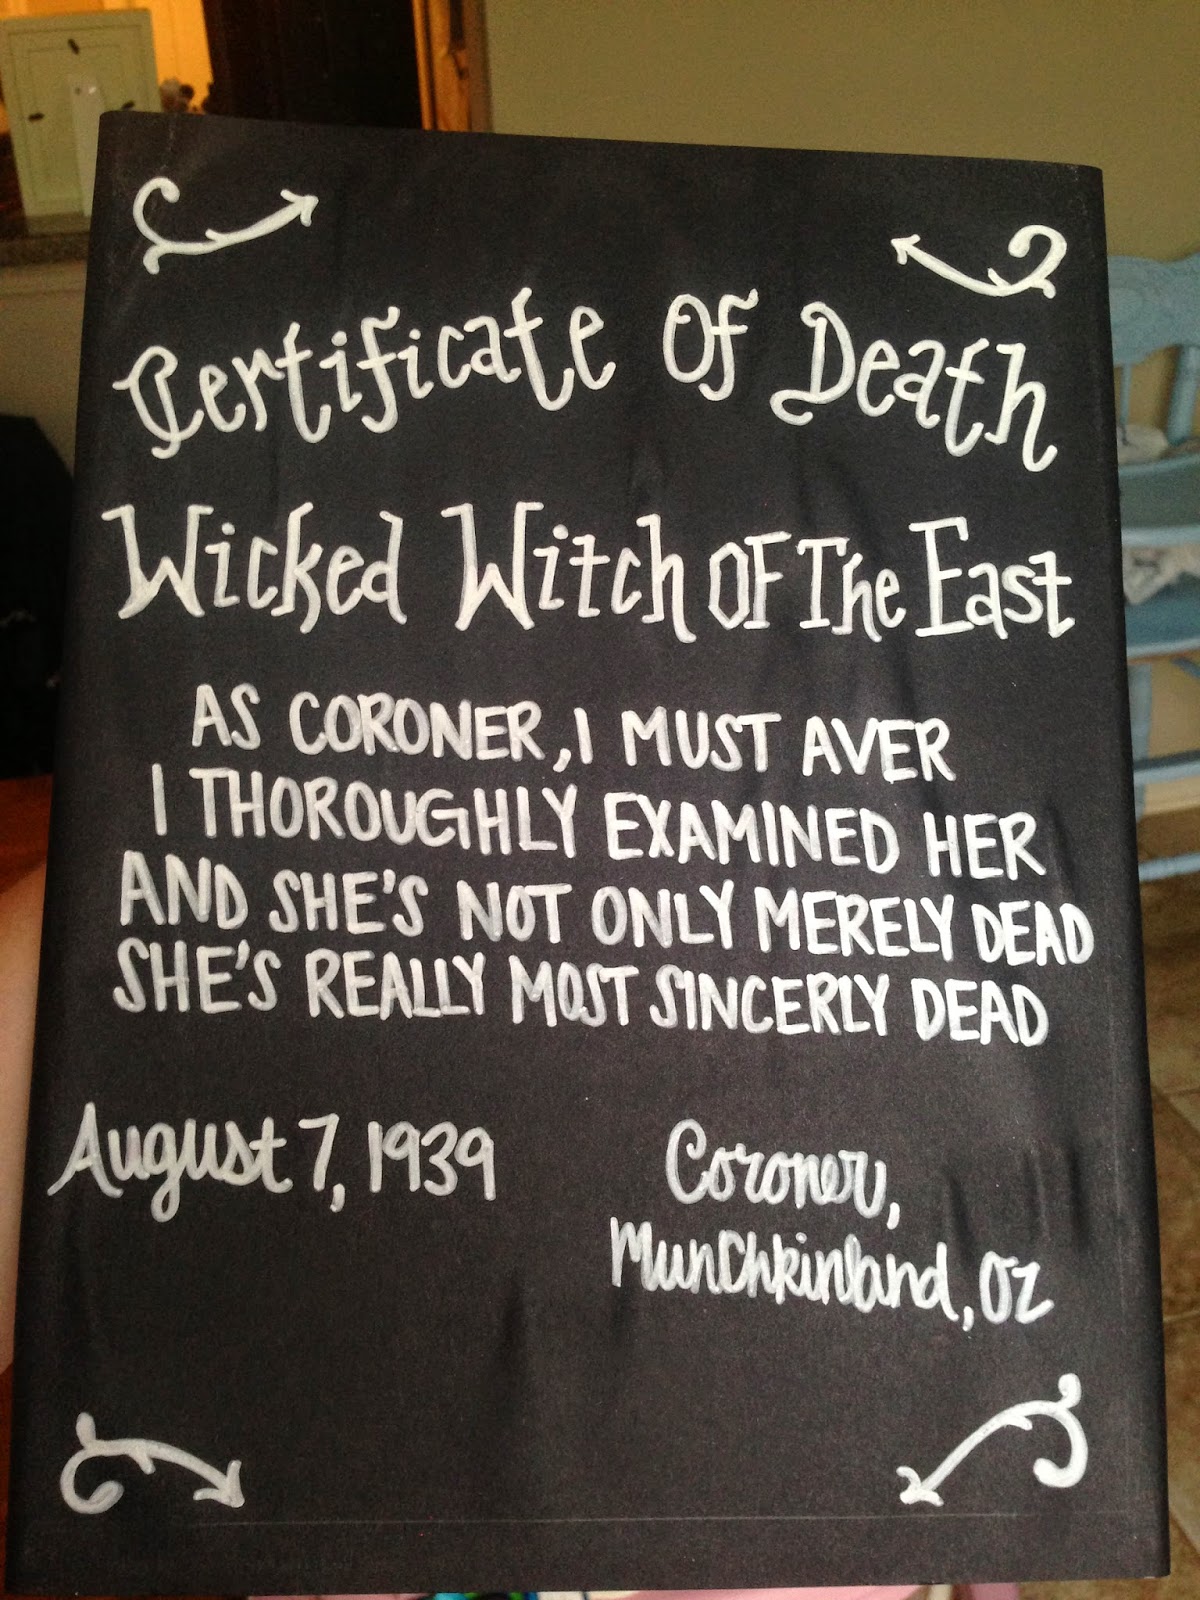 Certificate Of Death
Wicked Witch OF The East
AS CORONER, I MUST AVER
I THOROUGHLY EXAMINED HER
AND SHE'S NOT ONLY MERELY DEAD
SHE'S REALLY MOST SINCERLY DEAD
August 7, 1939
Coroner,
Munchkinland, OZ